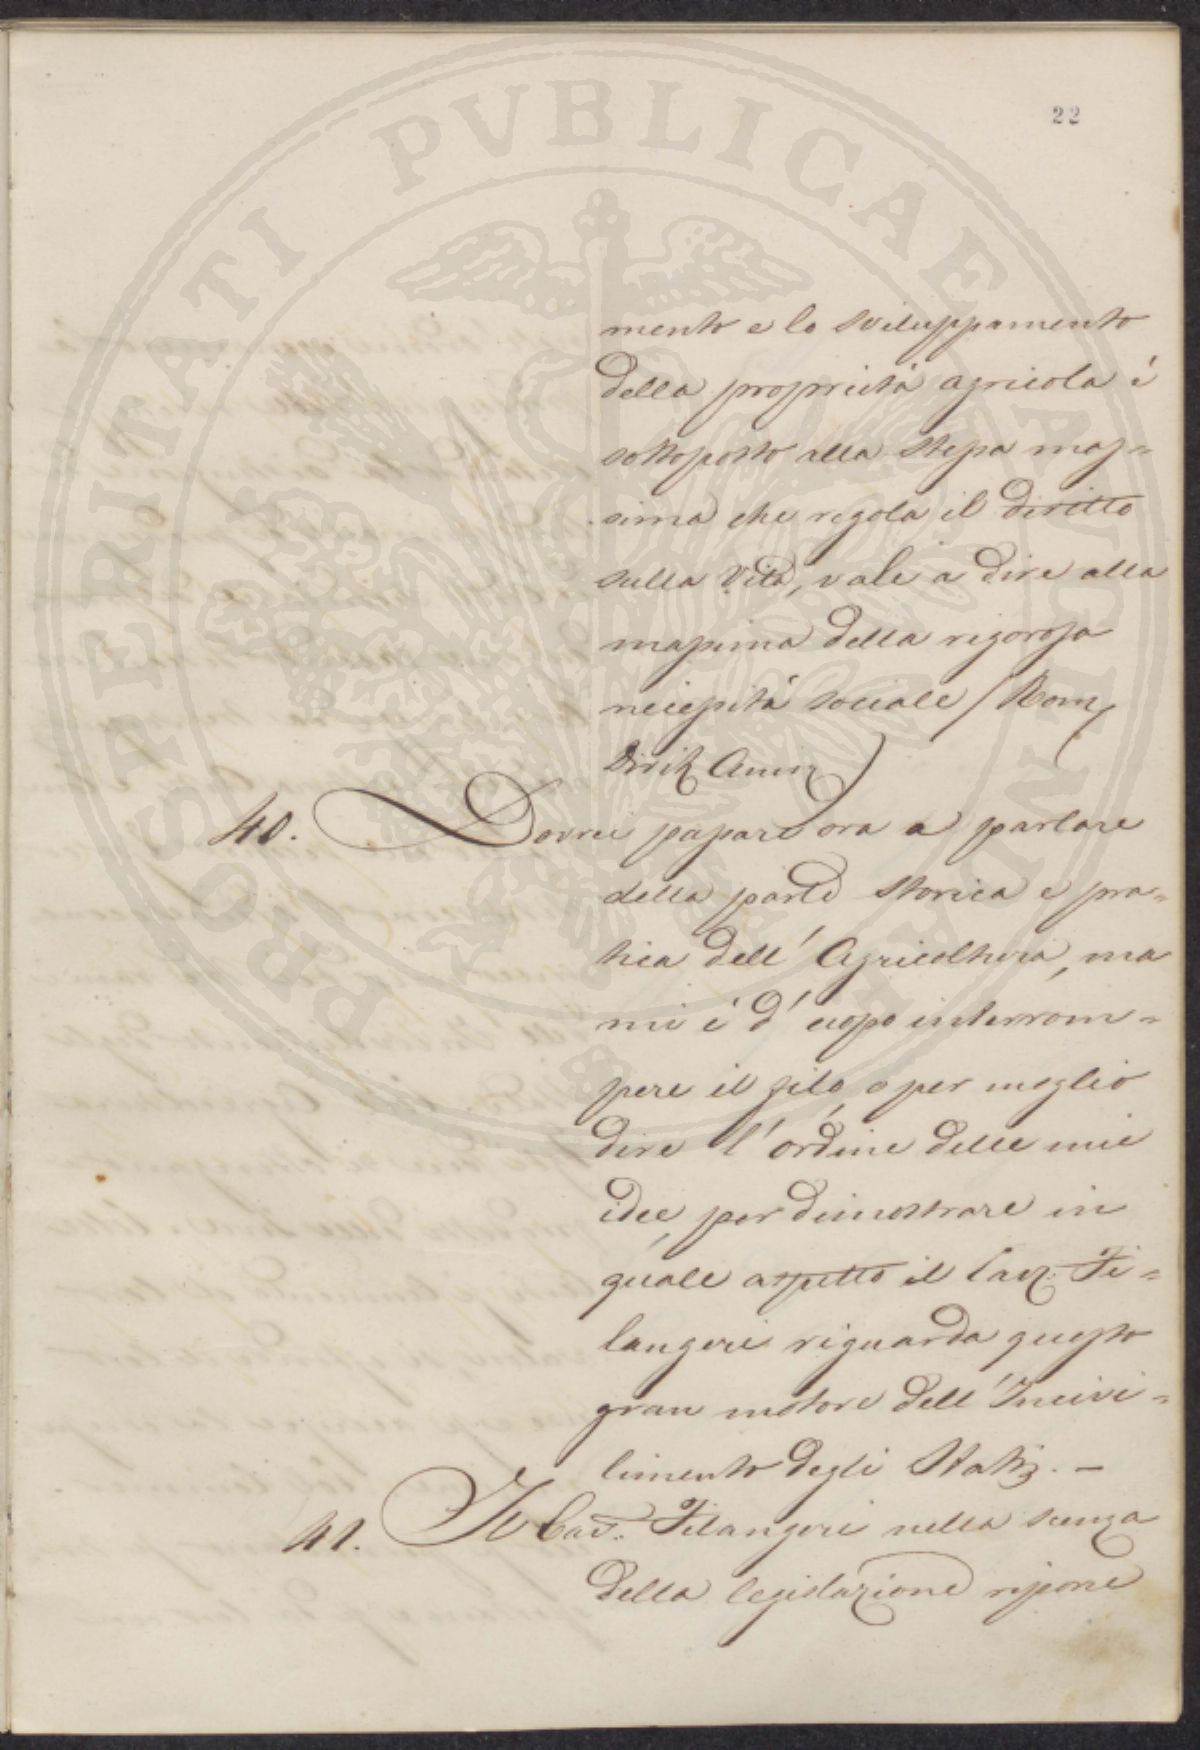 22
mento e lo sviluppamento
della proprietà agricola è
sottoposto alla stessa mas=
sima che regola il diritto
sulla vita, vale a dire alla
massima della rigorosa
necessità sociale (Rom,
Dirit Amm)
40. Dovrei passare ora a parlare
della parte storica e pra=
tica dell'Agricoltura, ma
mi è d'uopo interrom=
pere il filo, o per meglio
dire l'ordine delle mie
idee, per dimostrare in
quale aspetto il Cav. Fi=
langeri riguarda questo
gran motore dell'Incivi=
limento degli Stati. —
41. Il Cav. Filangeri nella scenza
della legislazione ripone
PROSPERITATI PVBLICAE AVGENDAE